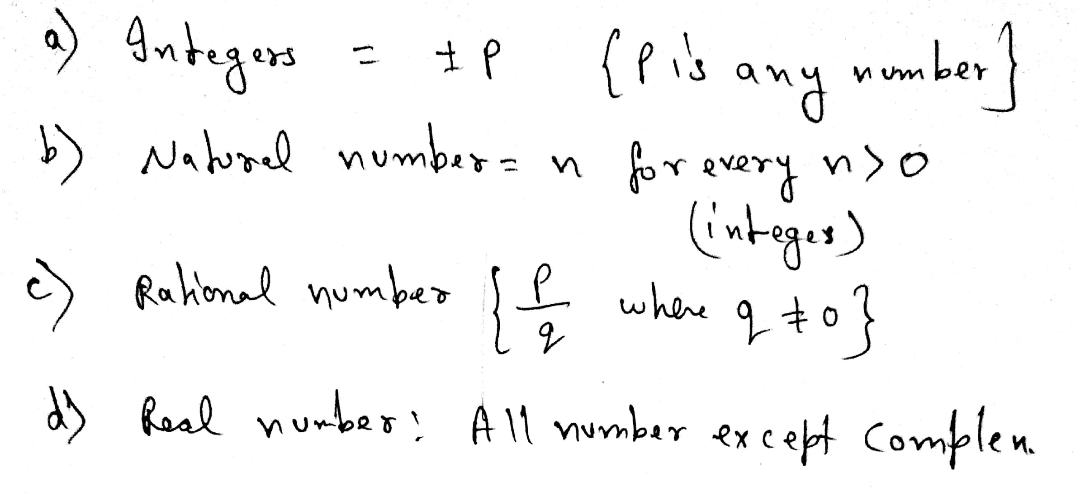 a) Integers = ± P {P is any number}
b) Natural number = n for every n>0
(integer)
c) Rational number { P/q where q ≠ 0}
d) Real number: All number except Complex.